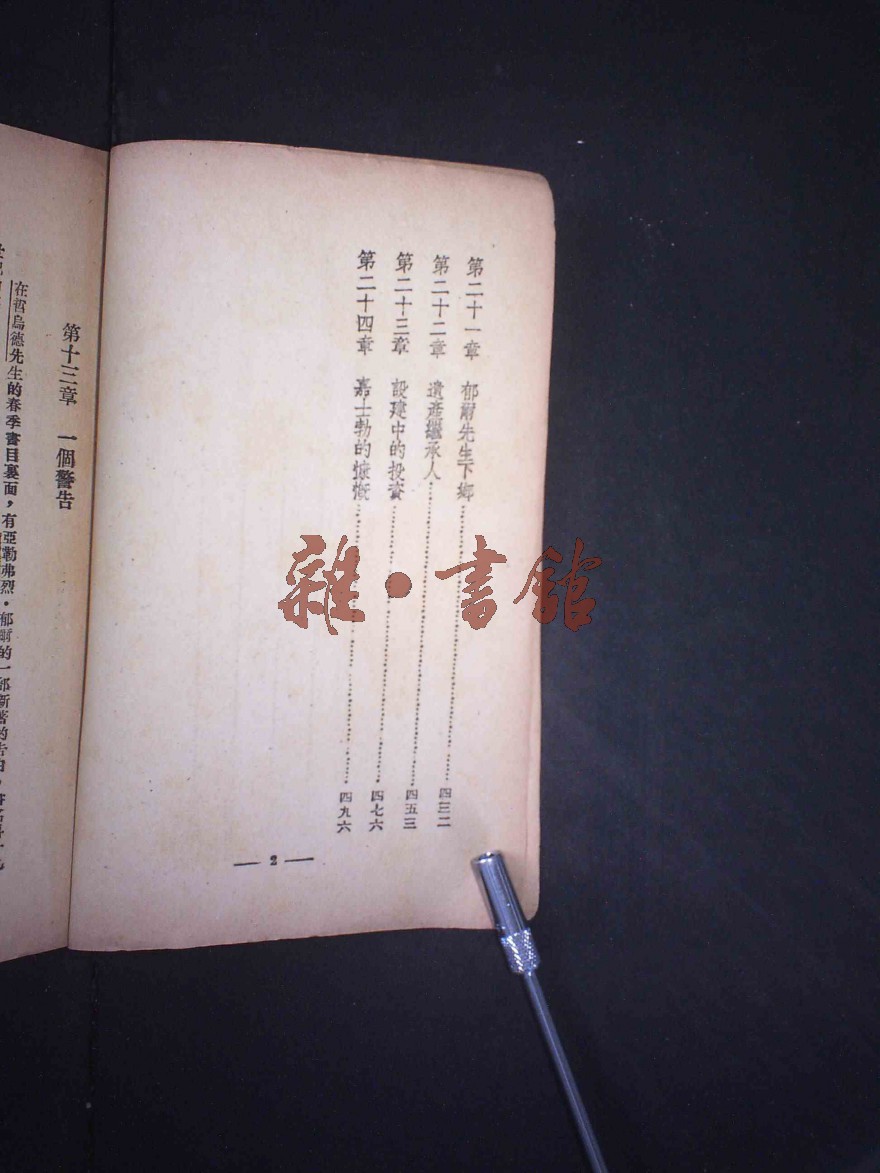 第二十一章　郁爾先生下鄉……四三二
第二十二章　遺產繼承人……四五三
第二十三章　設建中的投資……四七六
第二十四章　嘉士勃的慷慨……四九六
— 2 —
第十三章　一個警告
在哲烏德先生的春季書目裏面，有亞勒弗烈・郁爾的一部新著的告白，
雜・書館